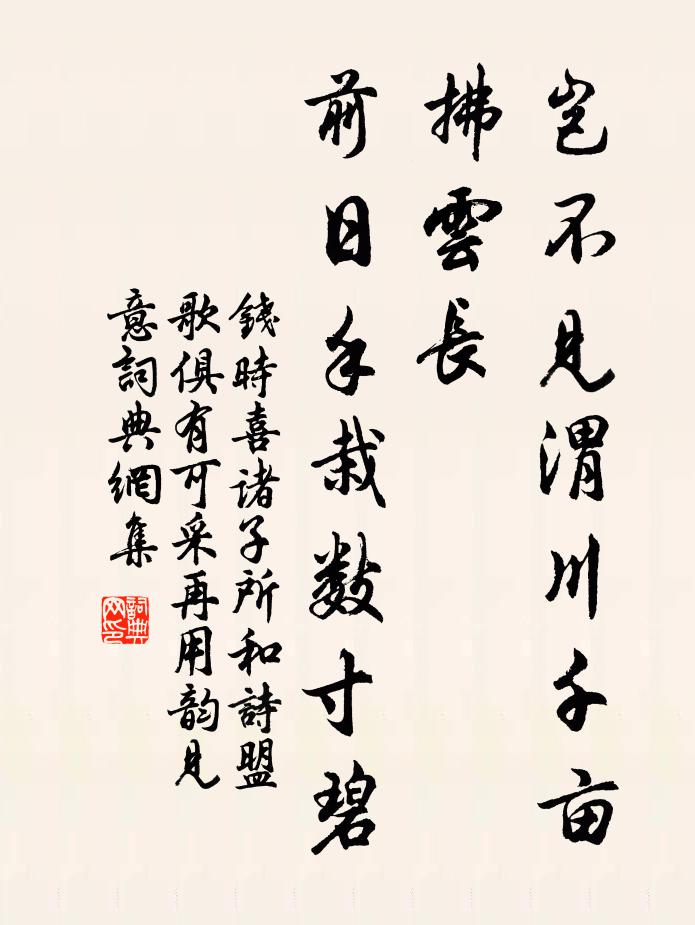 豈不見渭川千亩
拂雲長
前日手栽數寸碧
錢時喜諸子所和詩盟
歌俱有可采再用韵見
意詞典網集
詞典
网印